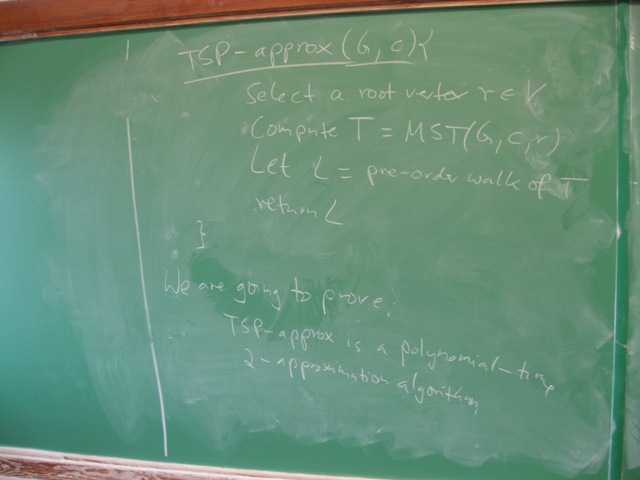 TSP-approx (G, c) {
Select a root vertex r ∈ V
Compute T = MST(G, c, r)
Let L = pre-order walk of T
return L
}
We are going to prove:
TSP-approx is a polynomial-time
2-approximation algorithm